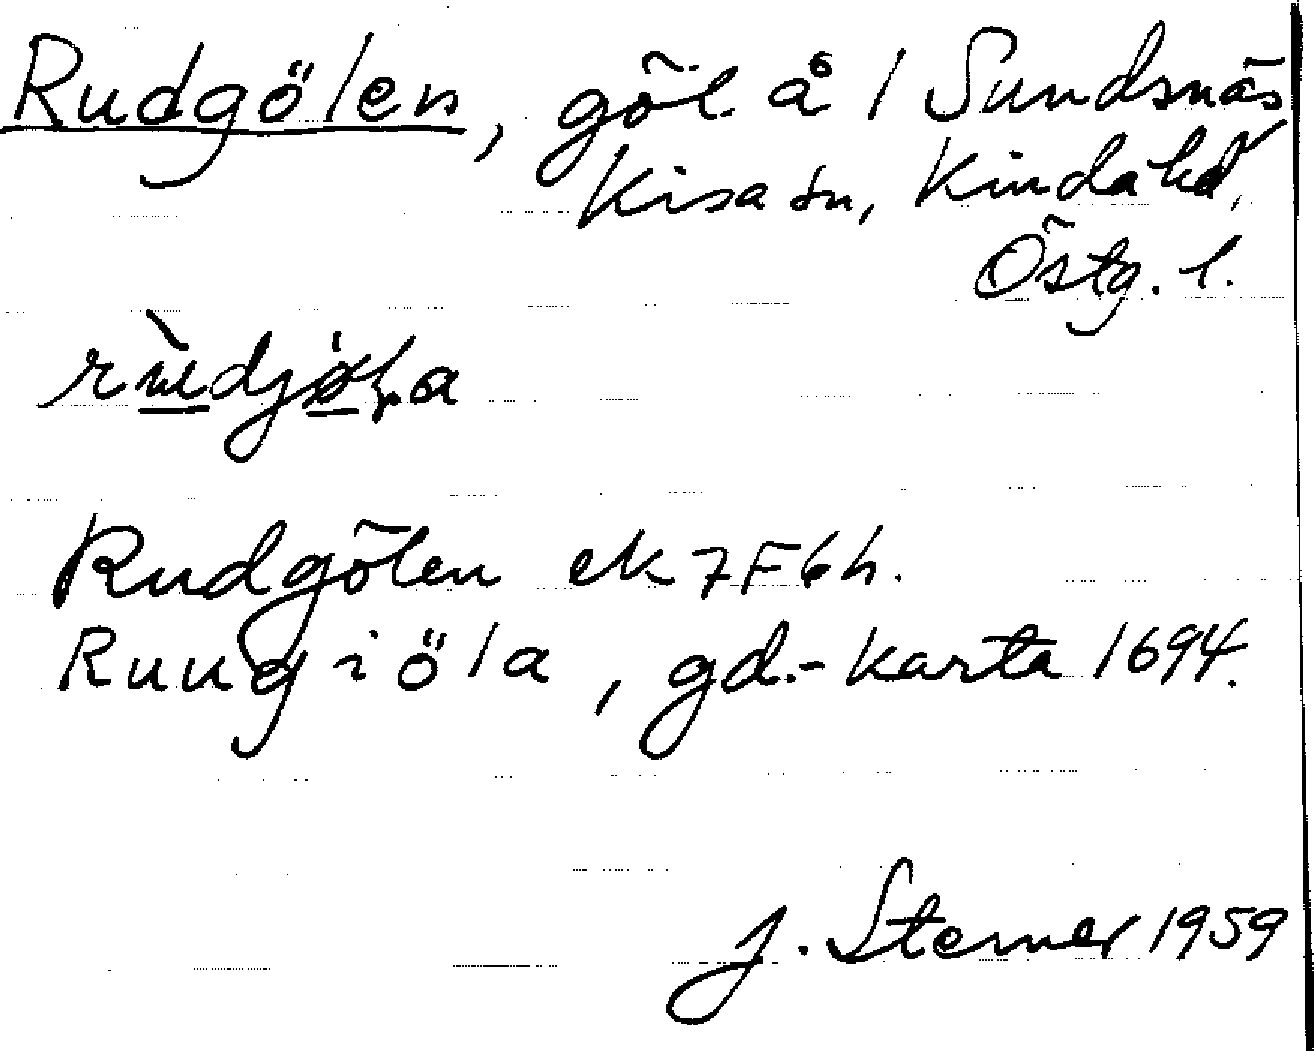 Rudgölen, göl. å 1 Sundsnäs
Kisa sn, Kinda hd,
Östg. l.
rùdjöla
Rudgölen ek 7F6h.
Ruugiöla, gd.-karta 1694.
J. Sterner 1959